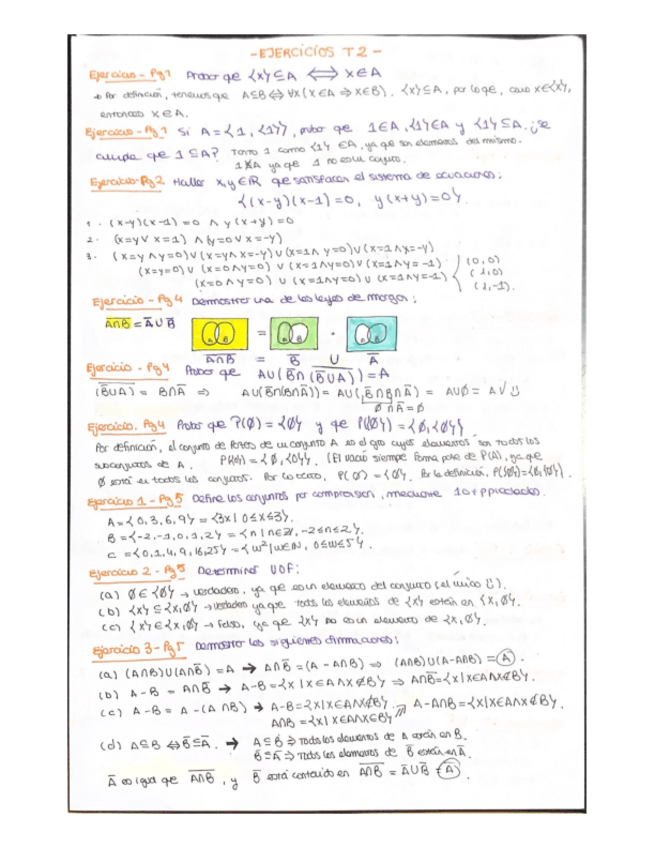 - EJERCICIOS T2 -
Ejercicio - Pg 1 Probar que {x} ⊆ A ⟺ x ∈ A
→ Por definición, tenemos que A⊆B ⟺ ∀x (x∈A ⇒ x∈B). {x} ⊆ A, por lo que, como x∈{x},
entonces x ∈ A.
Ejercicio - Pg 1 Si A = {1, {1}}, probar que 1∈A, {1}∈A y {1} ⊆ A. ¿Se
cumple que 1 ⊆ A? Tanto 1 como {1} ∈ A, ya que son elementos del mismo.
1 ⊈ A ya que 1 no es un conjunto.
Ejercicio - Pg 2 Hallar x, y ∈ ℝ que satisfacen el sistema de ecuaciones:
{(x-y)(x-1) = 0, y(x+y) = 0}.
1. (x-y)(x-1) = 0 ∧ y(x+y) = 0
2. (x=y ∨ x=1) ∧ (y=0 ∨ x=-y)
3. (x=y ∧ y=0) ∪ (x=y ∧ x=-y) ∪ (x=1 ∧ y=0) ∪ (x=1 ∧ x=-y)
(x=y=0) ∪ (x=0 ∧ y=0) ∪ (x=1 ∧ y=0) ∪ (x=1 ∧ y=-1)
(x=0 ∧ y=0) ∪ (x=1 ∧ y=0) ∪ (x=1 ∧ y=-1)
(0,0)
(1,0)
(1,-1).
Ejercicio - Pg 4 Demostrar una de las leyes de Morgan:
A̅∩̅B̅ = A̅ ∪ B̅
A B = A B . A B
A̅∩̅B̅ = B̅ ∪ A̅
Ejercicio - Pg 4 Probar que A∪(B̅∩(B̅∪̅A̅)) = A
(B̅∪̅A̅) = B̅∩A̅ ⇒ A∪(B̅∩(B̅∩A̅)) = A∪(B̅∩B∩A̅) = A∪∅ = A
∅∩A̅ = ∅
Ejercicio - Pg 4 Probar que P(∅) = {∅} y que P({∅}) = {∅, {∅}}
Por definición, el conjunto de Partes de un conjunto A es el cuyos elementos son todos los
subconjuntos de A. P({∅}) = {∅, {∅}}. (El vacío siempre forma parte de P(A), ya que
∅ está en todos los conjuntos. Por lo tanto, P(∅) = {∅}. Por la definición, P({∅}) = {∅, {∅}}.
Ejercicio 1 - Pg 5 Define los conjuntos por comprensión, mediante 1 o + predicados.
A = {0, 3, 6, 9} = {3x | 0≤x≤3}.
B = {-2, -1, 0, 1, 2} = {n | n∈ℤ, -2≤n≤2}.
C = {0, 1, 4, 9, 16, 25} = {w² | w∈ℕ, 0≤w≤5}.
Ejercicio 2 - Pg 5 Determinar V O F:
(a) ∅ ∈ {∅} → verdadero, ya que es un elemento del conjunto (el único).
(b) {x} ⊆ {x, ∅} → verdadero ya que todos los elementos de {x} están en {x, ∅}.
(c) {x} ∈ {x, ∅} → Falso, ya que {x} no es un elemento de {x, ∅}.
Ejercicio 3 - Pg 5 Demostrar las siguientes afirmaciones:
(a) (A∩B)∪(A∩B̅) = A → A∩B̅ = (A - A∩B) ⇒ (A∩B)∪(A-A∩B) = A.
(b) A - B = A∩B̅ → A-B = {x | x∈A ∧ x∉B} ⇒ A∩B̅ = {x | x∈A ∧ x∉B}.
(c) A - B = A - (A∩B) → A-B = {x | x∈A ∧ x∉B}. A-A∩B = {x | x∈A ∧ x∉B}.
A∩B = {x | x∈A ∧ x∈B}
(d) A⊆B ⟺ B̅⊆A̅. → A⊆B ⇒ Todos los elementos de A están en B.
B̅⊆A̅ ⇒ Todos los elementos de B̅ están en A̅.
A̅ es igual que A̅∩̅B̅, y B̅ está contenido en A̅∩̅B̅ = A̅∪B̅ = A̅.